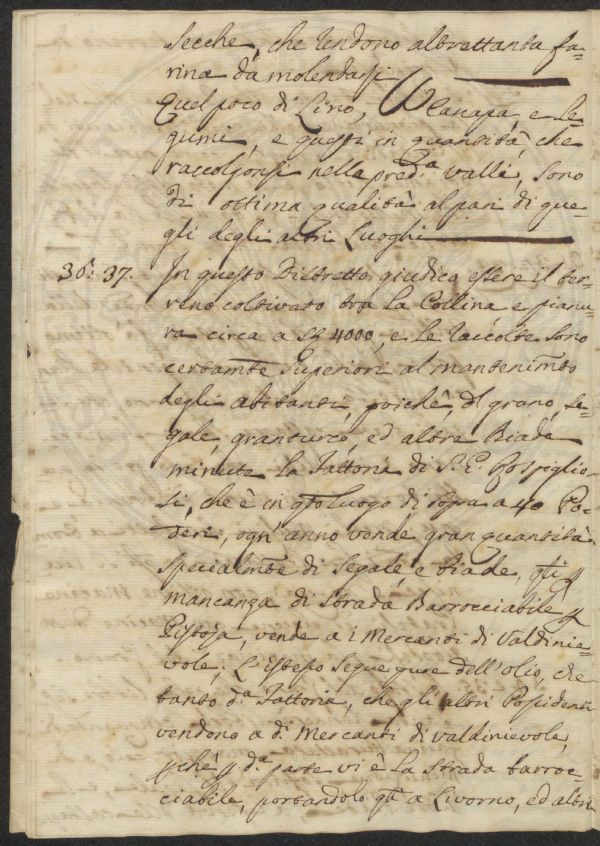 Secche, che rendono altrettanta fa-
rina da molendarsi
Quel poco di Lino, Canapa, e Le-
gumi, e questi in quantità, che
raccolgonsi nella pred.a Valle, sono
di ottima qualità al pari di que-
gli degli altri Luoghi
36: 37. In questo Distretto giudico essere il ter-
reno coltivato tra la Collina e pianu-
ra circa a 4000, e le raccolte sono
certamte Superiori al mantenimto
degli Abitanti, poichè di grano, se-
gale, granturco, ed altre Biade
minute la Fattoria di S. E. Rospiglio-
si, che è in qto luogo di sopra a 40 Po-
deri, ogn'anno vende gran quantità
specialmte di Segale, e biade, qli p
mancanza di Strada Barrocciabile p
Pistoja, vende a i Mercanti di Valdinie-
vole; L'istesso segue pure dell'olio, che
tanto d.a Fattoria, che gli altri Possidenti
vendono a di Mercanti di Valdinievole,
pchè p d.a parte vi è la strada barroc-
ciabile, portandolo qti a Livorno, ed altri